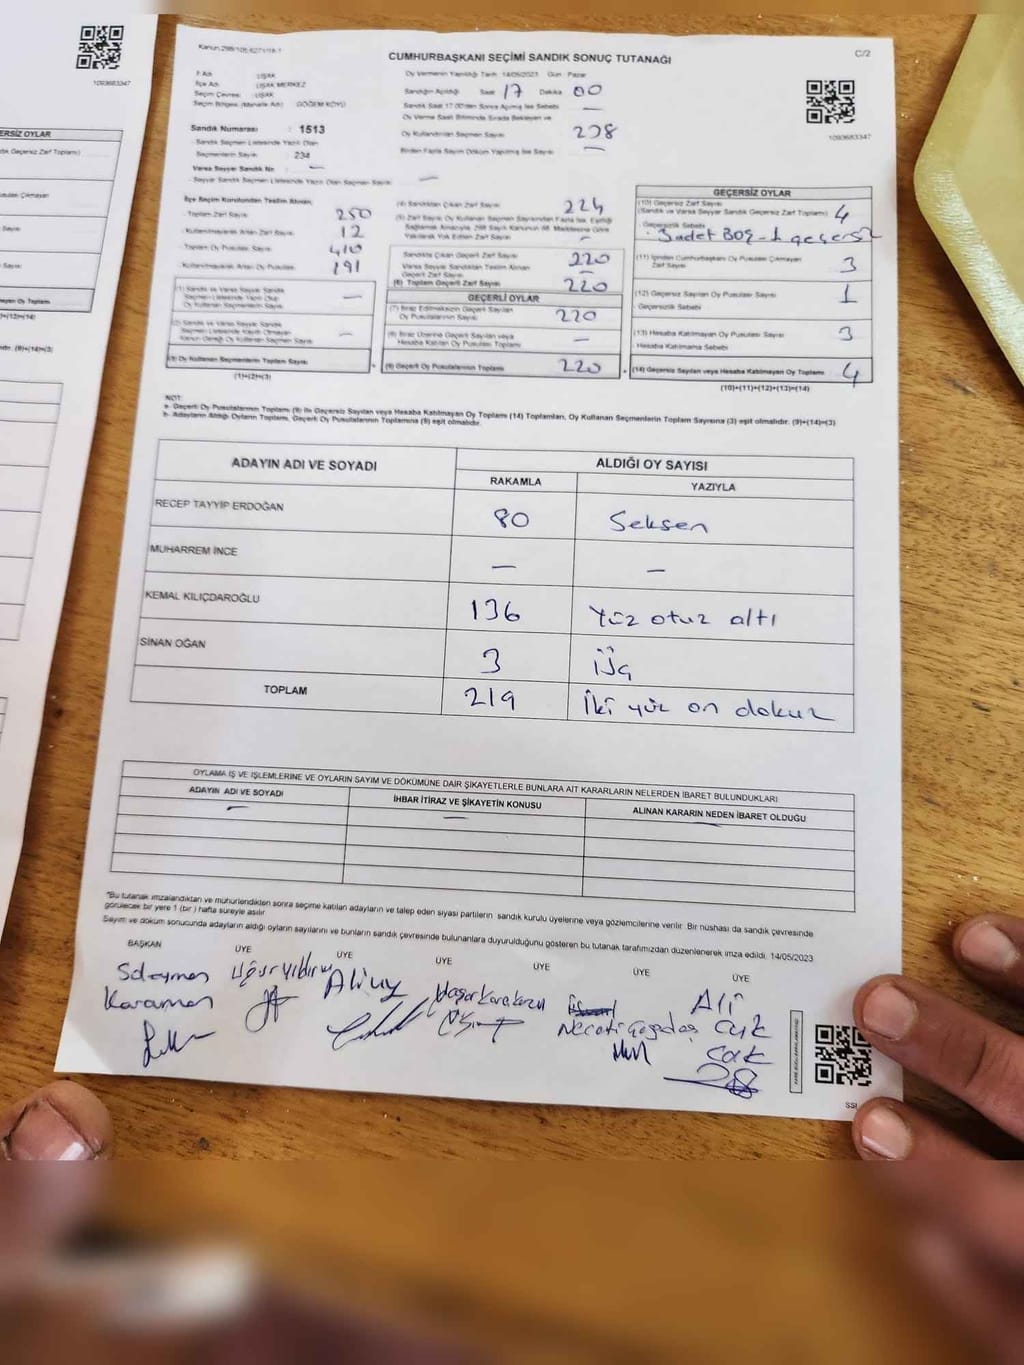 Kanun 298/105
CUMHURBAŞKANI SEÇİMİ SANDIK SONUÇ TUTANAĞI
C/2
1093683347
1093683347
İl Adı : UŞAK
İlçe Adı : UŞAK MERKEZ
Seçim Çevresi : UŞAK
Seçim Bölgesi (Mahalle Adı) : GÖĞEM KÖYÜ
Oy Vermenin Yapıldığı Tarih: 14/05/2023 Gün: Pazar
Sandığın Açıldığı Saat 17 Dakika 00
Sandık Saat 17.00'den Sonra Açılmış İse Sebebi —
Oy Verme Saati Bitiminde Sırada Bekleyen ve
Oy Kullandırılan Seçmen Sayısı
Birden Fazla Sayım Döküm Yapılmış İse Sayısı —
Sandık Numarası : 1513
Sandık Seçmen Listesinde Yazılı Olan
Seçmenlerin Sayısı : 234
Varsa Seyyar Sandık No : —
Seyyar Sandık Seçmen Listesinde Yazılı Olan Seçmen Sayısı : —
İlçe Seçim Kurulundan Teslim Alınan;
Toplam Zarf Sayısı 250
Kullanılmayarak Artan Zarf Sayısı 12
Toplam Oy Pusulası Sayısı 410
Kullanılmayarak Artan Oy Pusulası 191
(1) Sandık ve Varsa Seyyar Sandık
Seçmen Listesinde Yazılı Olup
Oy Kullanan Seçmenlerin Sayısı —
(2) Sandık ve Varsa Seyyar Sandık
Seçmen Listesinde Kaydı Olmayan
Kanun Gereği Oy Kullanan Seçmenlerin Sayısı —
(3) Oy Kullanan Seçmenlerin Toplam Sayısı
(1)+(2)=(3)
(4) Sandıktan Çıkan Zarf Sayısı 224
(5) Zarf Sayısı Oy Kullanan Seçmen Sayısından Fazla İse, Eşitliği
Sağlamak Amacıyla, 298 Sayılı Kanunun 98. Maddesine Göre
Yakılarak Yok Edilen Zarf Sayısı —
Sandıkta Çıkan Geçerli Zarf Sayısı 220
Varsa Seyyar Sandıktan Teslim Alınan
Geçerli Zarf Sayısı —
(6) Toplam Geçerli Zarf Sayısı 220
GEÇERLİ OYLAR
(7) İtiraz Edilmeksizin Geçerli Sayılan
Oy Pusulalarının Sayısı 220
(8) İtiraz Üzerine Geçerli Sayılan veya
Hesaba Katılan Oy Pusulası Toplamı —
(9) Geçerli Oy Pusulalarının Toplamı 220
GEÇERSİZ OYLAR
(10) Geçersiz Zarf Sayısı
(Sandık ve Varsa Seyyar Sandık Geçersiz Zarf Toplamı) 4
Geçersizlik Sebebi
3 adet BOŞ - 1 geçersiz
(11) İçinden Cumhurbaşkanı Oy Pusulası Çıkmayan
Zarf Sayısı 3
(12) Geçersiz Sayılan Oy Pusulası Sayısı 1
Geçersizlik Sebebi
(13) Hesaba Katılmayan Oy Pusulası Sayısı 3
Hesaba Katılmama Sebebi
(14) Geçersiz Sayılan veya Hesaba Katılmayan Oy Toplamı 4
(10)+(11)+(12)+(13)=(14)
NOT:
a- Geçerli Oy Pusulalarının Toplamı (9) ile Geçersiz Sayılan veya Hesaba Katılmayan Oy Toplamı (14) Toplamları, Oy Kullanan Seçmenlerin Toplam Sayısına (3) eşit olmalıdır. (9)+(14)=(3)
b- Adayların Aldığı Oyların Toplamı, Geçerli Oy Pusulalarının Toplamına (9) eşit olmalıdır.
ADAYIN ADI VE SOYADI ALDIĞI OY SAYISI
RAKAMLA YAZIYLA
RECEP TAYYİP ERDOĞAN 80 Seksen
MUHARREM İNCE — —
KEMAL KILIÇDAROĞLU 136 Yüz otuz altı
SİNAN OĞAN 3 üç
TOPLAM 219 İki yüz on dokuz
OYLAMA İŞ VE İŞLEMLERİNE VE OYLARIN SAYIM VE DÖKÜMÜNE DAİR ŞİKAYETLERLE BUNLARA AİT KARARLARIN NELERDEN İBARET BULUNDUKLARI
ADAYIN ADI VE SOYADI İHBAR İTİRAZ VE ŞİKAYETİN KONUSU ALINAN KARARIN NEDEN İBARET OLDUĞU
— — —
"Bu tutanak imzalandıktan ve mühürlendikten sonra seçime katılan adayların ve talep eden siyasi partilerin sandık kurulu üyelerine veya gözlemcilerine verilir. Bir nüshası da sandık çevresinde
görülecek bir yere 1 (bir) hafta süreyle asılır
Sayım ve döküm sonucunda adayların aldığı oyların sayılarını ve bunların sandık çevresinde bulunanlara duyurulduğunu gösteren bu tutanak tarafımızdan düzenlenerek imza edildi. 14/05/2023
BAŞKAN ÜYE ÜYE ÜYE ÜYE ÜYE ÜYE
Süleyman Uğur Yıldırım Ali Uy Yaşar Karakuzu Ali
Karaman Necati